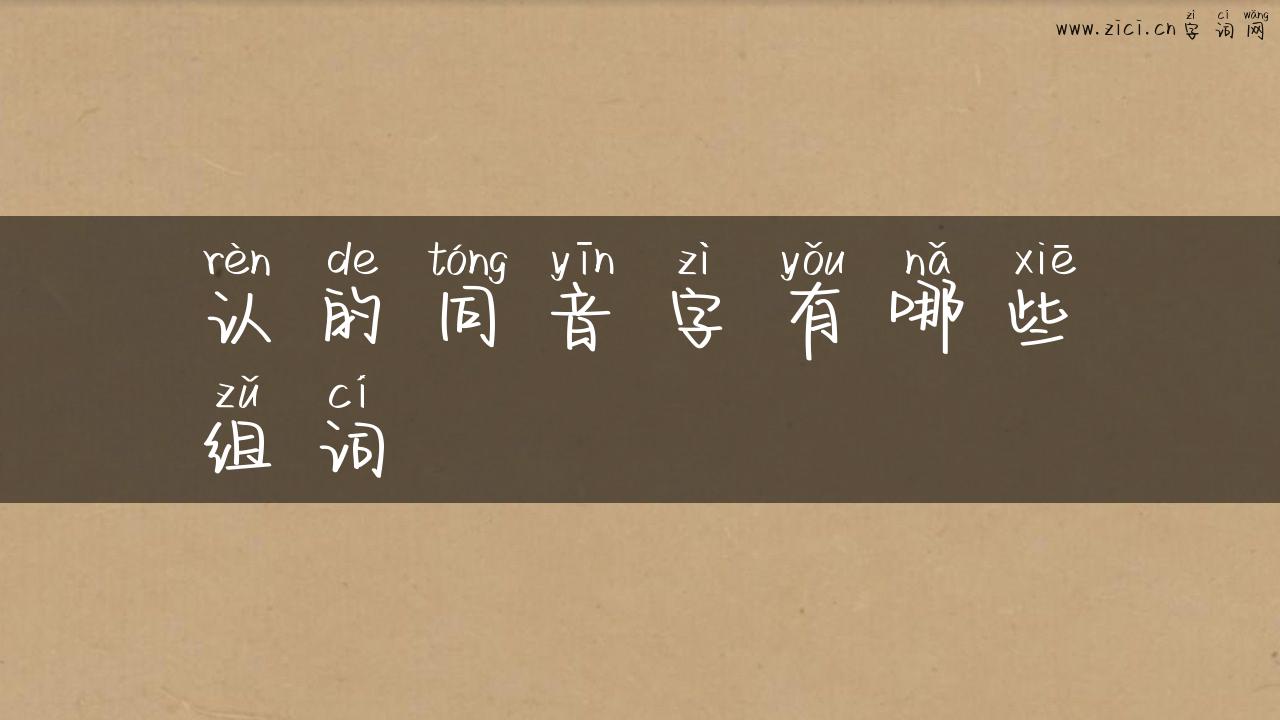 zì cí wǎng
www.zici.cn 字 词 网
rèn de tóng yīn zì yǒu nǎ xiē
认 的 同 音 字 有 哪 些
zǔ cí
组 词